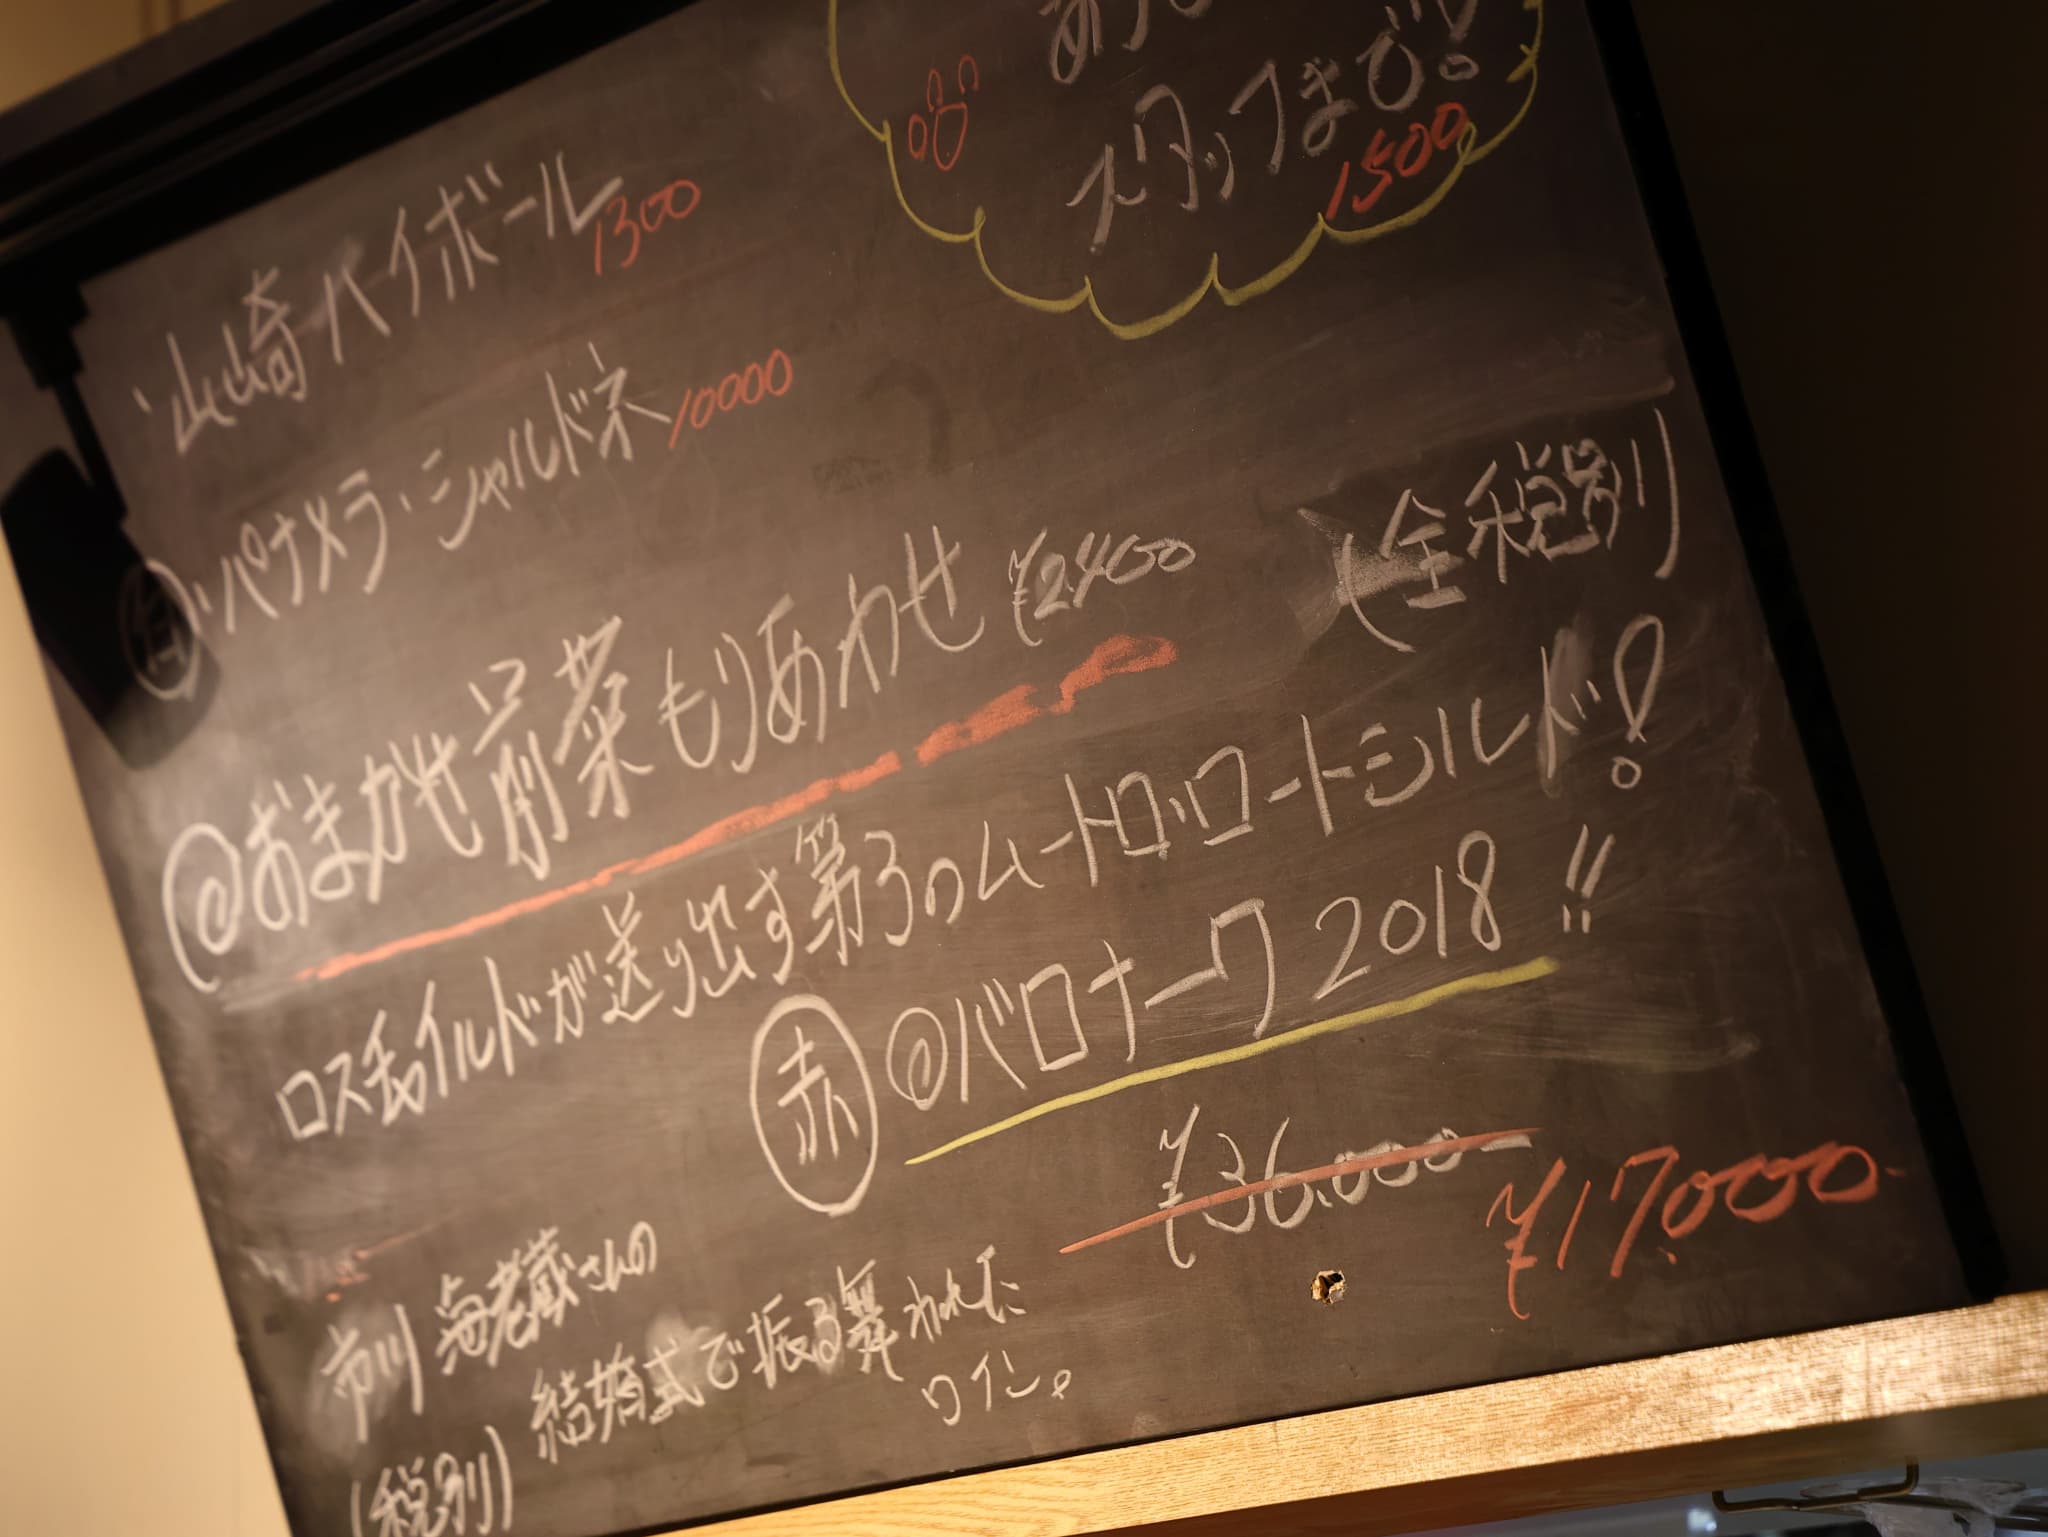 スタッフまで!
1500
山崎ハイボール 1300
白 パナメラ・シャルドネ 10000
@おまかせ前菜もりあわせ ¥2400
(全税別)
ロスチャイルドが送り出す第3のムートンロートシルド!
赤 @バロナーク 2018 !!
¥36.000-
¥17.000-
市川海老蔵さんの
結婚式で振る舞われた
ワイン。
(税別)